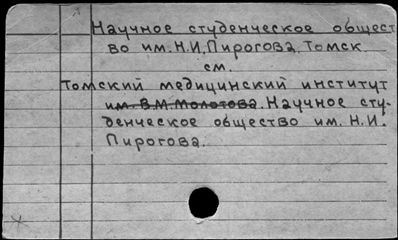 Научное студенческое общест
во им. Н.И.Пирогова. Томск
см.
Томский медицинский институт
им. В.М.Молотова. Научное сту-
денческое общество им. Н.И.
Пирогова.